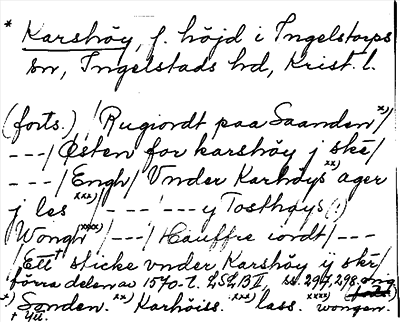 * Karshöy, f. höjd i Ingelstorps
sn, Ingelstads hd, Krist. l.
(forts.) /Rugiordt paa Saanden x)/
---/ Østen for karshöy j ske/
---/ Engh/ Vnder Karhöys xx) ager
j les xxx)/ --- --- y Tosthøys(!)
Wongh xxxx)/ ---/ Hauffre iordt/ ---
/Ett † sticke vnder Karshöy ij ske/
förra delen av 1570-t. LSLB II, ss. 297, 298. orig.
x) Sonden. xx) Karhöiss. xxx) lass. xxxx) wongen.
† ytt.